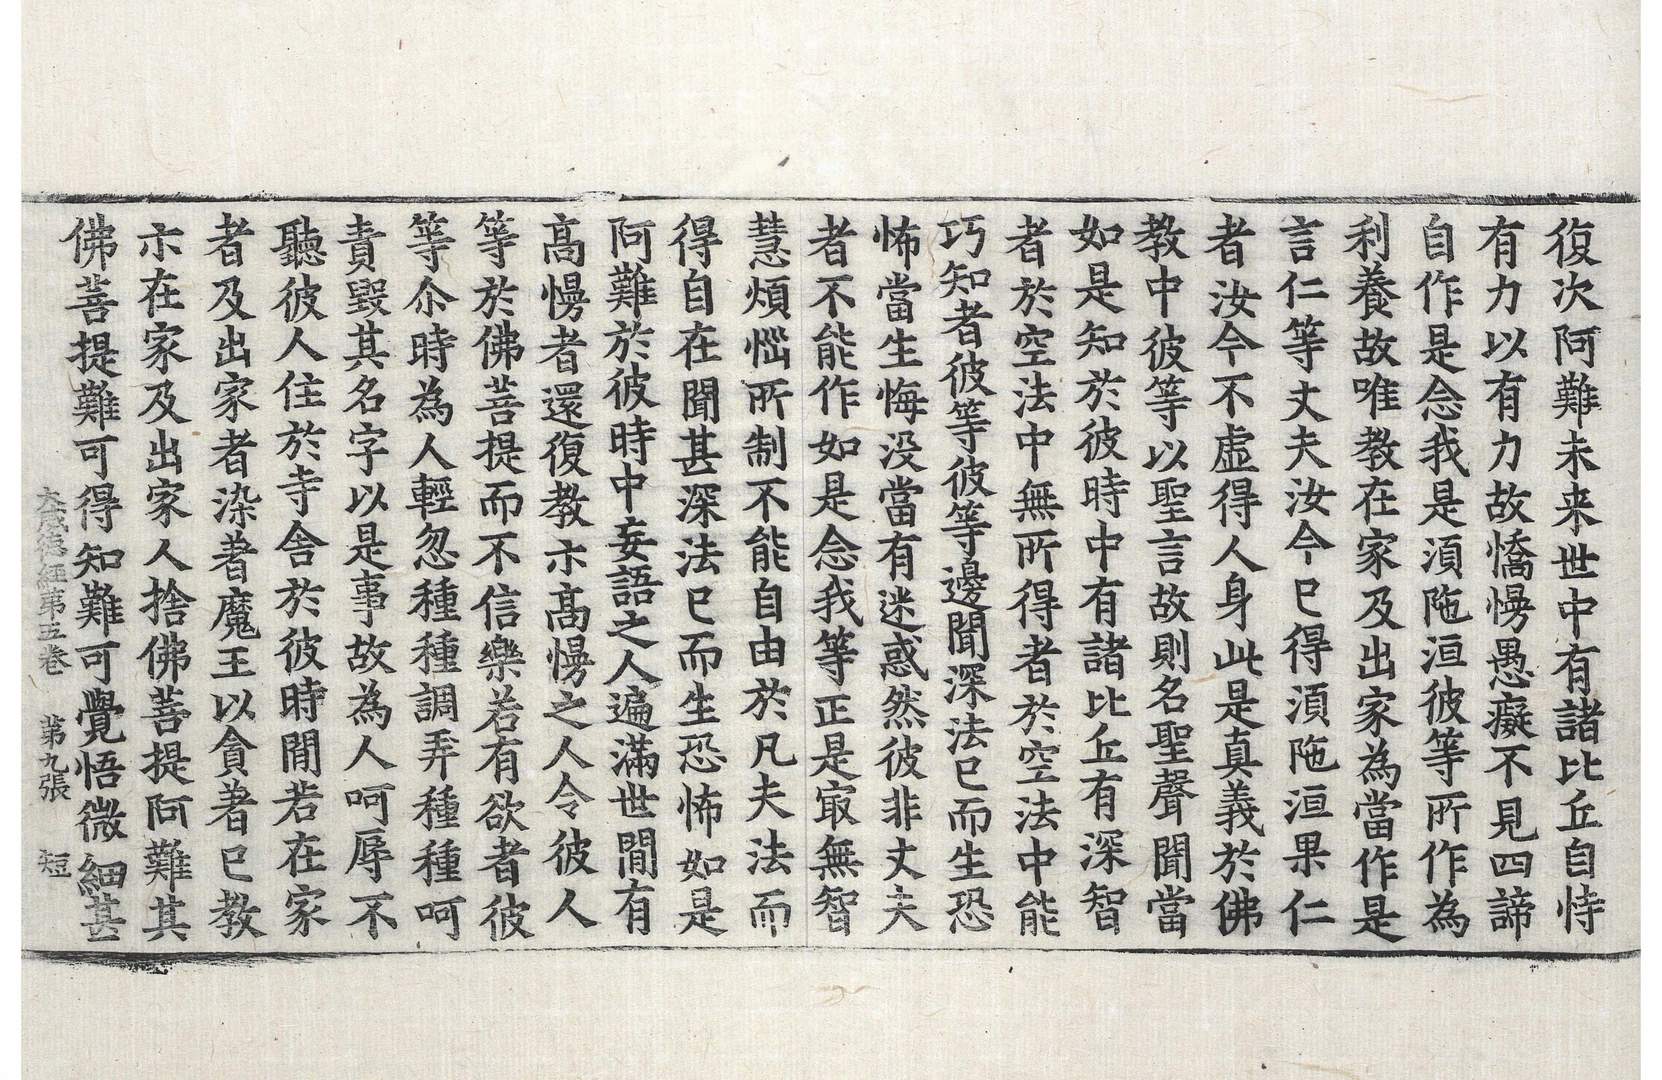 復次阿難未来世中有諸比丘自恃
有力以有力故憍慢愚癡不見四諦
自作是念我是湏陁洹彼等所作為
利養故唯教在家及出家為當作是
言仁等丈夫汝今已得湏陁洹果仁
者汝今不虛得人身此是真義於佛
教中彼等以聖言故則名聖聲聞當
如是知於彼時中有諸比丘有深智
者於空法中無所得者於空法中能
巧知者彼等彼等邊聞深法已而生恐
怖當生悔没當有迷惑然彼非丈夫
者不能作如是念我等正是㝡無智
慧煩惱所制不能自由於凡夫法而
得自在聞甚深法已而生恐怖如是
阿難於彼時中妄語之人遍滿世間有
高慢者還復教亦高慢之人令彼人
等於佛菩提而不信樂若有欲者彼
等尒時為人輕忽種種調弄種種呵
責毀其名字以是事故為人呵辱不
聽彼人住於寺舍於彼時間若在家
者及出家者染著魔王以貪著已教
亦在家及出家人捨佛菩提阿難其
佛菩提難可得知難可覺悟微細甚
大威德經第五卷　第九張　短